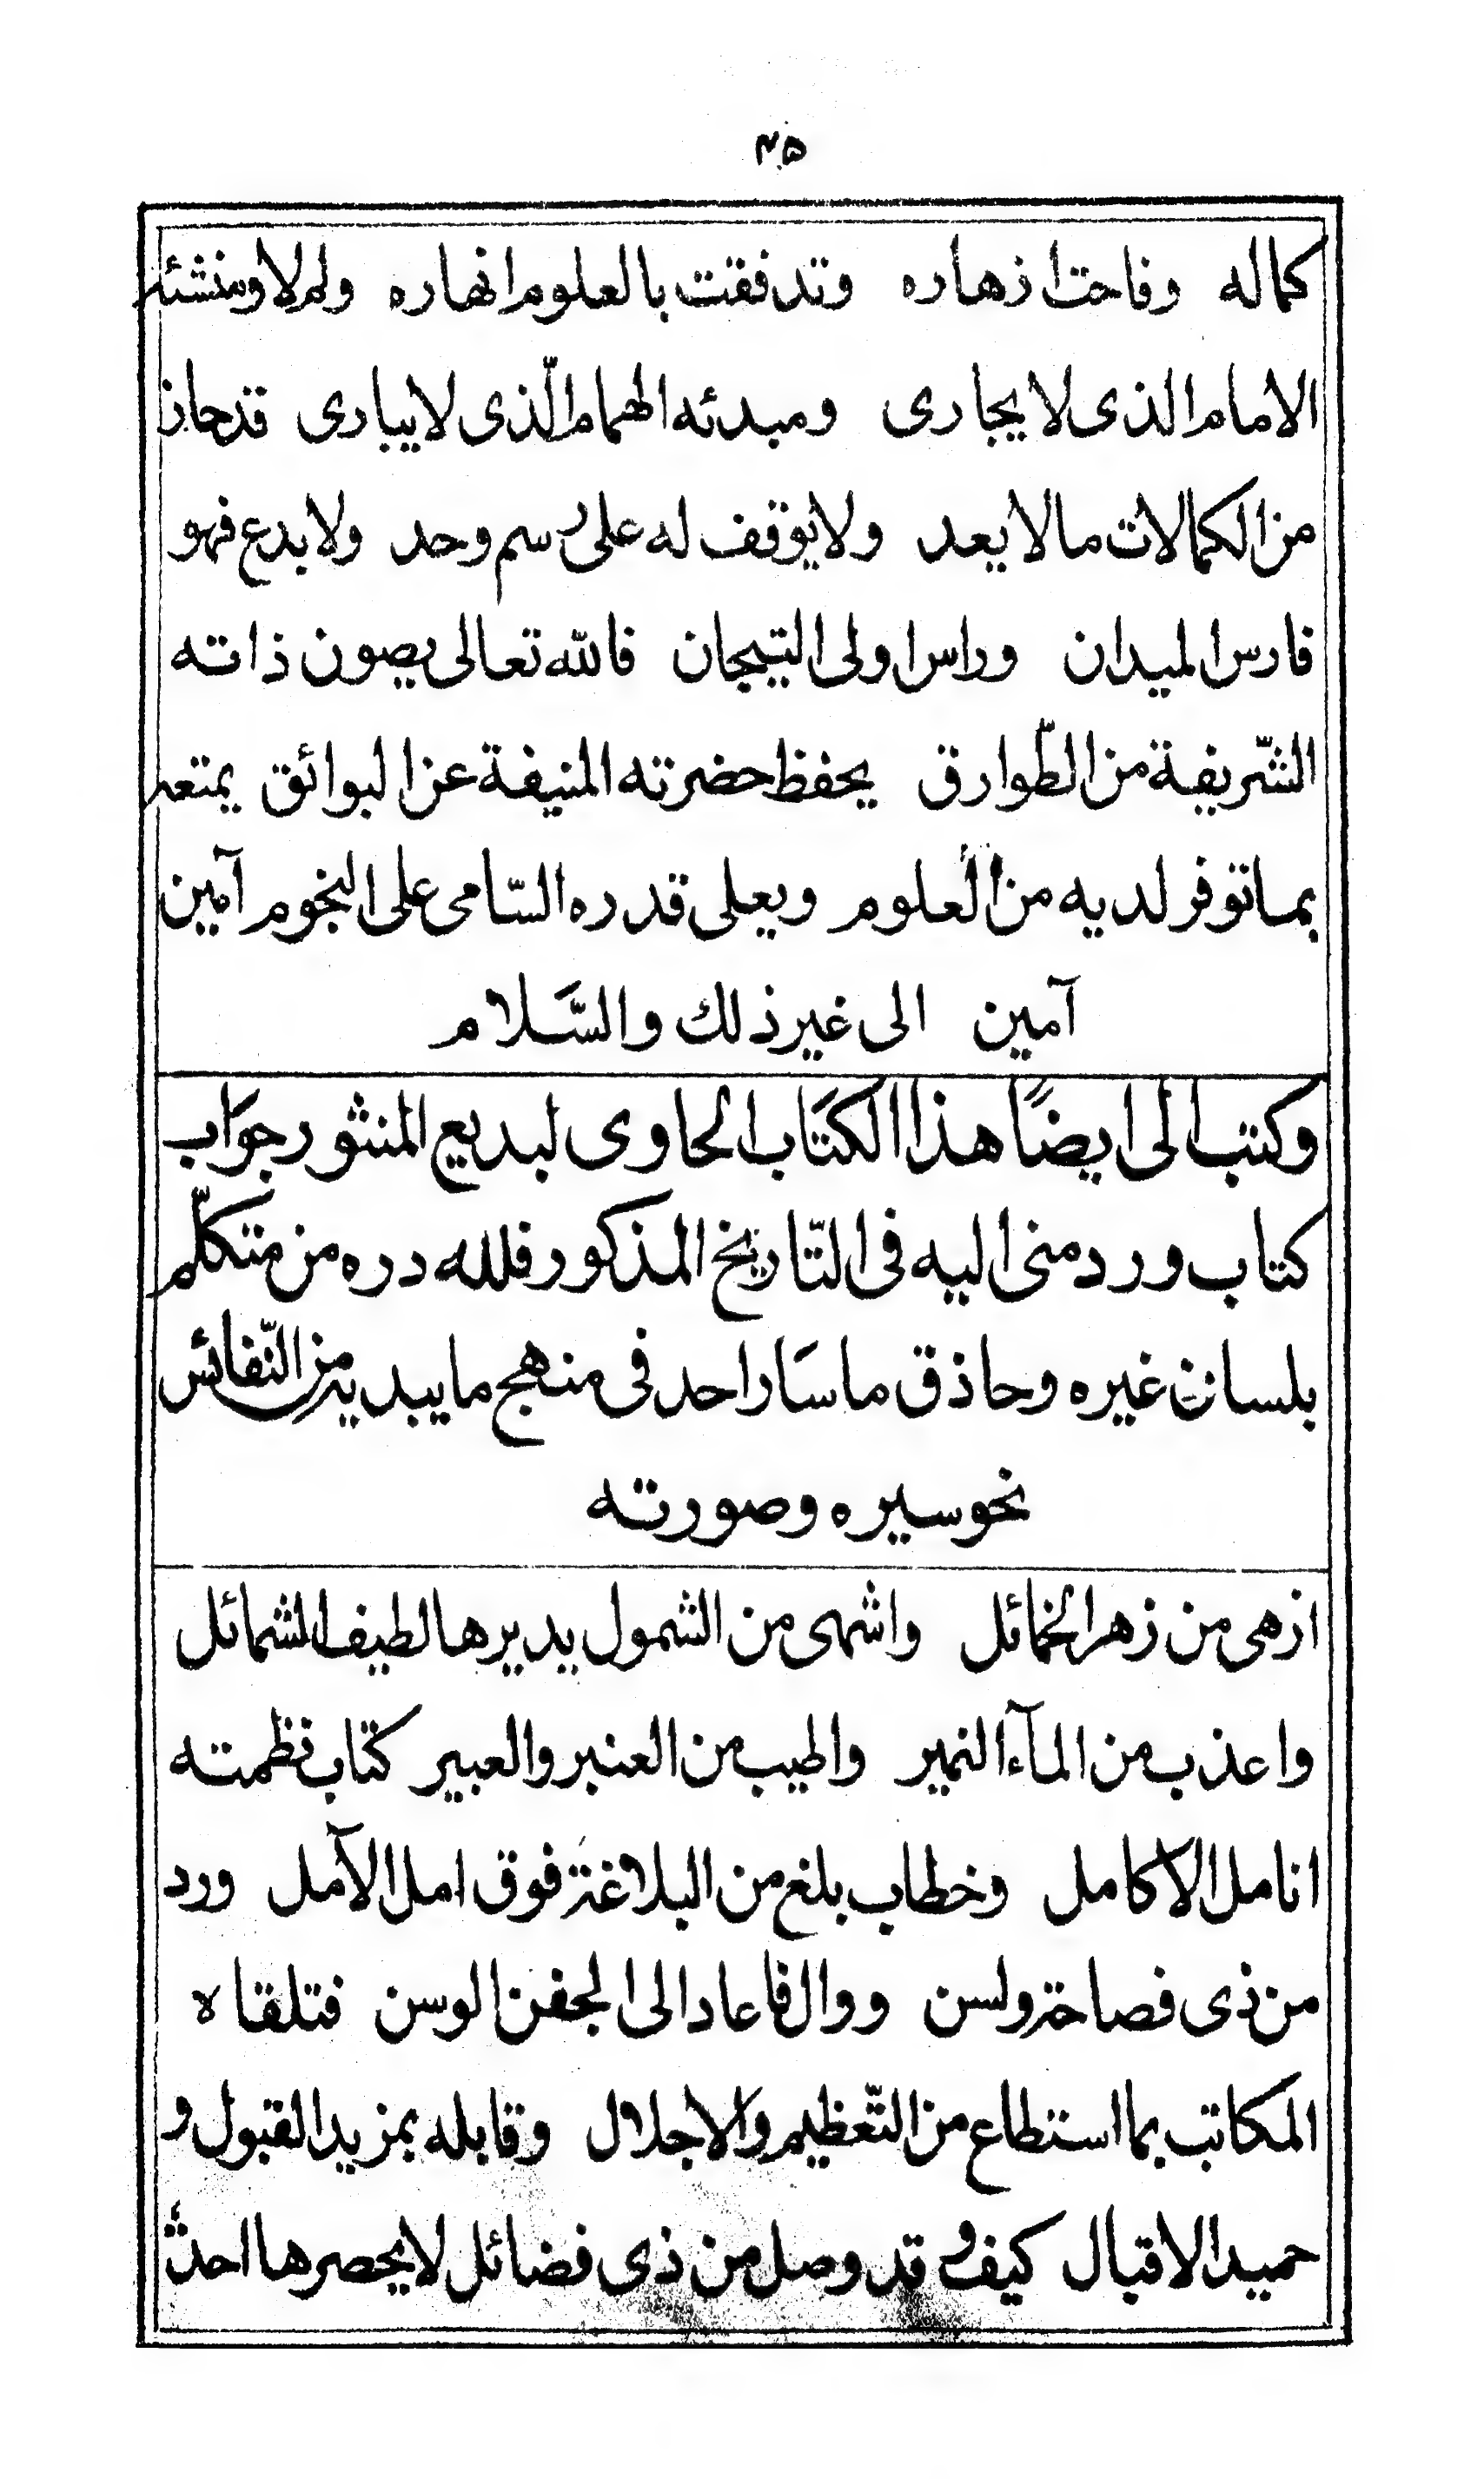 ۴۵
كماله وفاحت ازهاره وتدفقت بالعلوم انهاره ولم لا ومنشئه
الامام الذى لا يجارى ومبدئه الهمام الّذى لا يبارى قد حاز
من الكمالات ما لا يعد ولا يوقف له على رسم وحد ولا بدع فهو
فارس الميدان وراس اولى التيجان فالله تعالى يصون ذاته
الشّريفة من الطّوارق يحفظ حضرته المنيفة عن البوائق يمتعه
بما توفر لديه من العلوم ويعلى قدره السّامى على النجوم آمين
آمين الى غير ذلك والسَّلام
وكتب الى ايضًا هذا الكتَاب الحاوى لبديع المنثور جوَاب
كتاب ورد منى اليه فى التّاريخ المذكور فلله دره من متكلّم
بلسان غيره وحاذق ما سَار احد فى منهج ما يبديه من النّفائس
نحو سيره وصورته
ازهى من زهر الخمائل واشهى من الشمول يديرها لطيف الشمائل
واعذب من المآء النمير واطيب من العنبر والعبير كتاب نظمته
انامل الاكامل وخطاب بلغ من البلاغة فوق امل الآمل ورد
من ذى فصاحة ولسن ووال فاعاد الى الجفن الوسن فتلقاه
المكاتب بما استطاع من التّعظيم والاجلال وقابله بمزيد القبول و
حميد الاقبال كيف وقد وصل من ذى فضائل لا يحصرها احدٌ